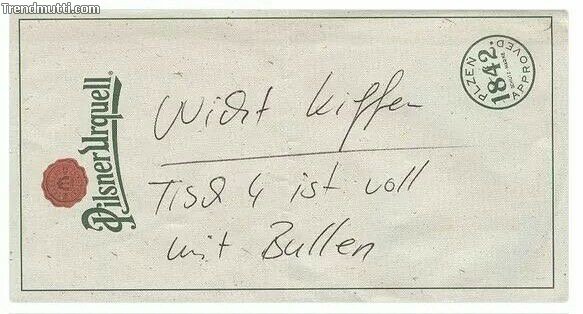 Trendmutti.com
Nicht kiffen
Tisch 4 ist voll
mit Bullen
Pilsner Urquell
PLZEŇ
1842
APPROVED